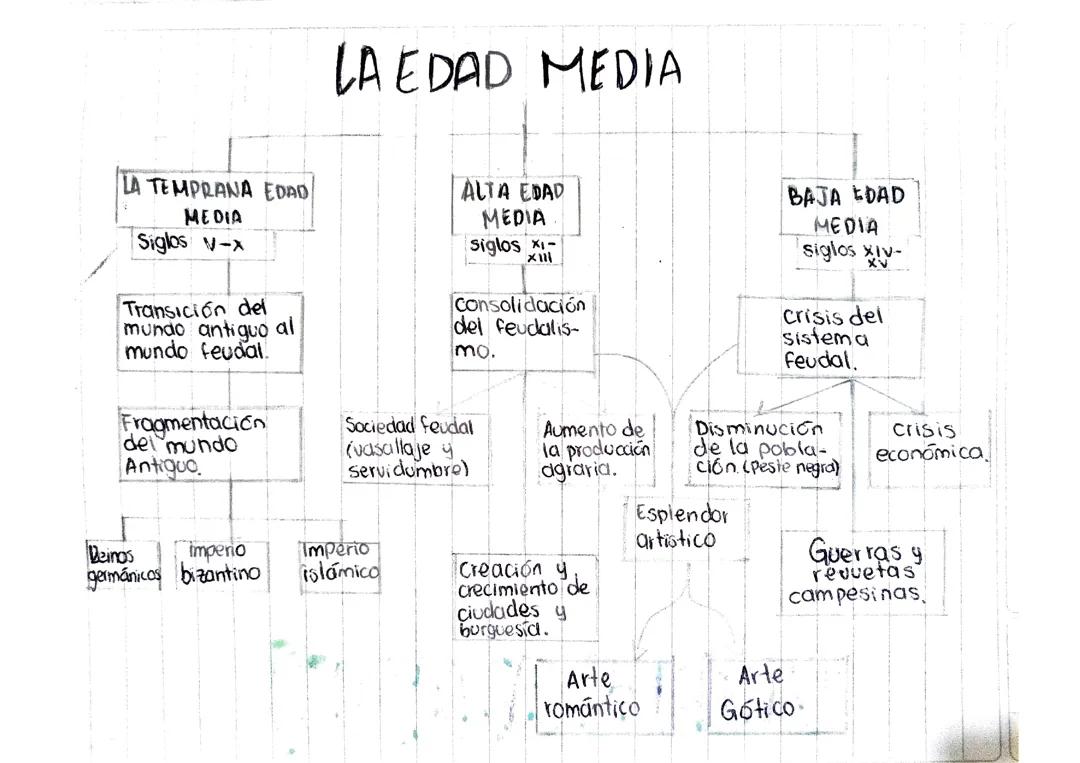 LA EDAD MEDIA
LA TEMPRANA EDAD
MEDIA
Siglos V-X
Transición del
mundo antiguo al
mundo feudal.
Fragmentación
del mundo
Antiguo.
Reinos
germánicos
Imperio
bizantino
Imperio
islámico
ALTA EDAD
MEDIA
siglos XI-
XIII
Consolidación
del feudalis-
mo.
Sociedad feudal
(vasallaje y
servidumbre)
Aumento de
la producción
agraria.
Creación y
crecimiento de
ciudades y
burguesía.
Esplendor
artístico
Arte
romántico
Arte
Gótico.
BAJA EDAD
MEDIA
siglos XIV-
XV
Crisis del
sistema
feudal.
Disminución
de la pobla-
ción (Peste negra)
crisis
económica.
Guerras y
revuetas
campesinas.